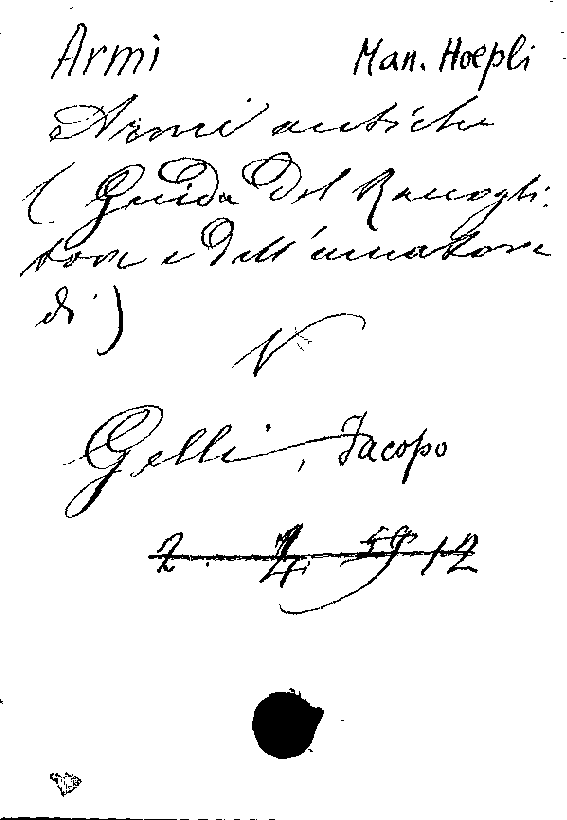 Armi Man. Hoepli
Armi antiche
( Guida del Raccogli-
tore e dell'amatore
di )
V
Gelli, Jacopo